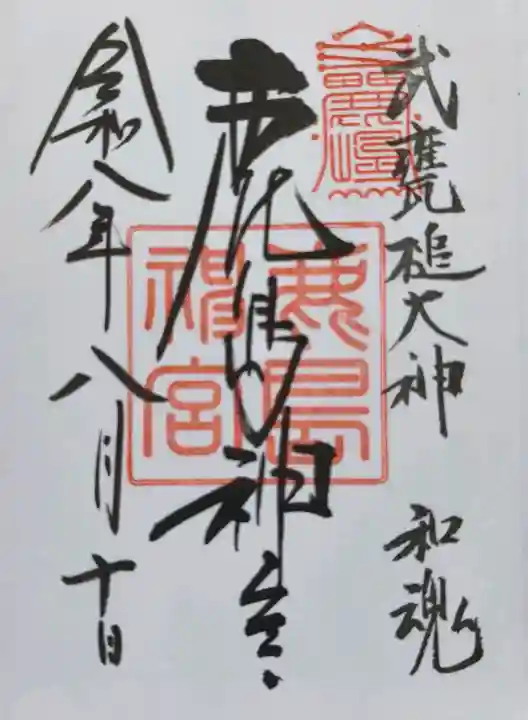 武甕槌大神 和魂
鹿島神宮
令和八年八月十日
鹿島
神宮